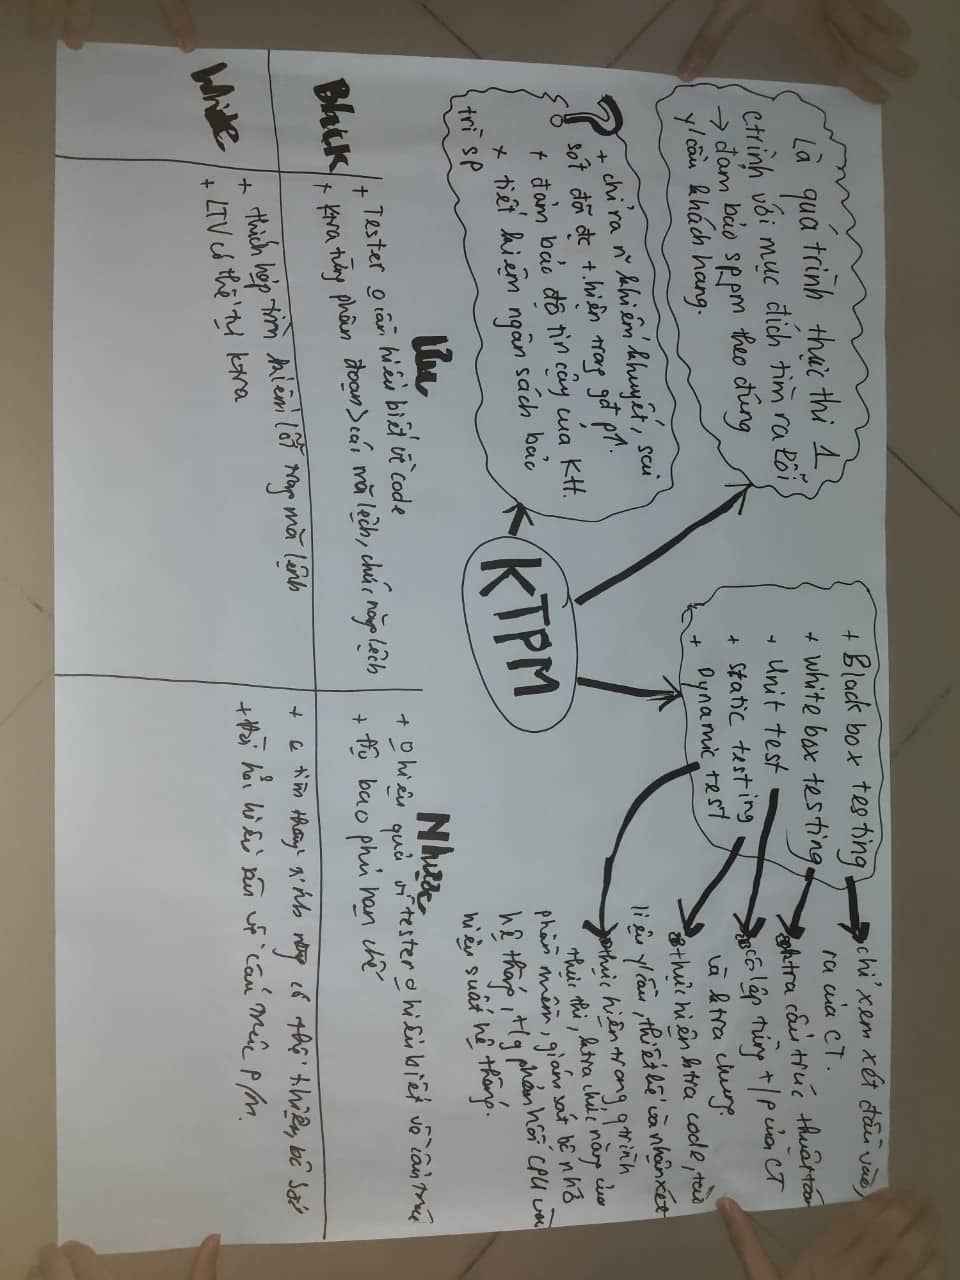 Là quá trình thực thi 1
ctrình với mục đích tìm ra lỗi
→ đảm bảo sppm theo đúng
y/cầu khách hang.
?
+ chỉ ra n~ khiếm khuyết, sai
sót đã đc t.hiện trong gđ pt.
+ đảm bảo độ tin cậy của KH.
+ tiết kiệm ngân sách bảo
trì sp
KTPM
+ Black box testing
+ white box testing
+ Unit test
+ static testing
+ Dynamic test
chỉ xem xét đầu vào,
ra của CT.
ktra cấu trúc thuật toán
cô lập từng t/p của CT
và ktra chung.
thực hiện ktra code, tài
liệu y/cầu, thiết kế và nhận xét
thực hiện trong q trình
thực thi, ktra chức năng của
phần mềm, giám sát bộ nhớ
hệ thống, t/g phản hồi CPU và
hiệu suất hệ thống.
Ưu
Nhược
Black
+ Tester o cần hiểu biết về code
+ Ktra từng phân đoạn > các mã lệch, chức năng lệch
+ o hiệu quả vì tester o hiểu biết về
+ độ bao phủ hạn chế
White
+ thích hợp tìm kiếm lỗi trong mã lệnh
+ LTV có thể tự ktra
+ tìm thấy tính năng có thể thiếu, bỏ sót
+ đòi hỏi hiểu sâu về cấu trúc p/m.